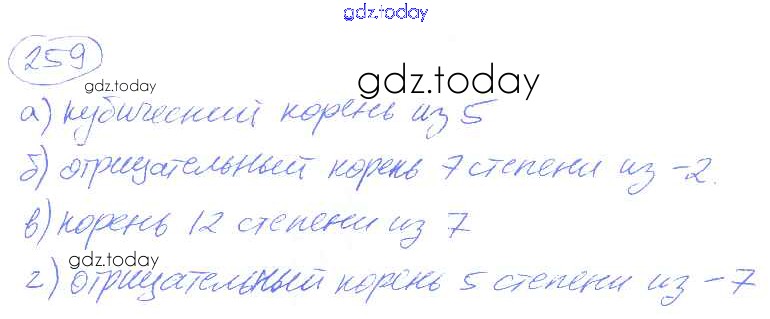 gdz.today
259
gdz.today
gdz.today
а) кубический корень из 5
б) отрицательный корень 7 степени из -2.
в) корень 12 степени из 7
gdz.today
г) отрицательный корень 5 степени из -7